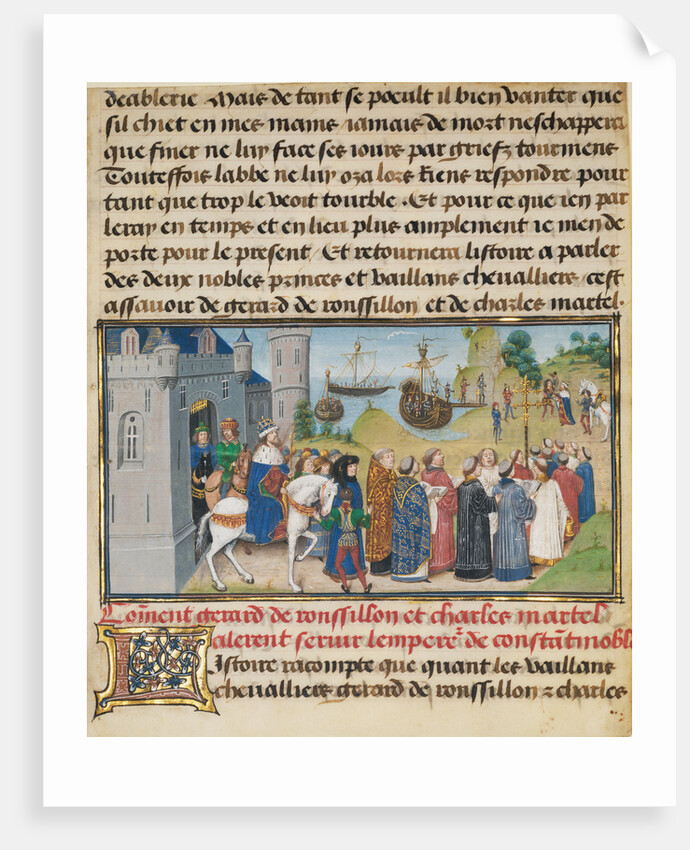 deablerie . Mais de tant se poeult il bien vanter que
sil chiet en mes mains iamais de mort neschappera
que finer ne luy face ses iours par griefz tourmens
Touteffois labbe ne luy oza lors riens respondre pour
tant que trop le veoit tourble . Et pour ce que ien par
leray en temps et en lieu plus amplement ie men de
porte pour le present / Et retournera listoire a parler
des deux nobles princes et vaillans chevalliers cest
assavoir de gerard de roussillon et de charles martel .
Com̄ent gerard de roussillon et charles martel
alerent servir lempereʳ de constātinoble
Listoire racompte que quant les vaillans
chevalliers gerard de roussillon z charles